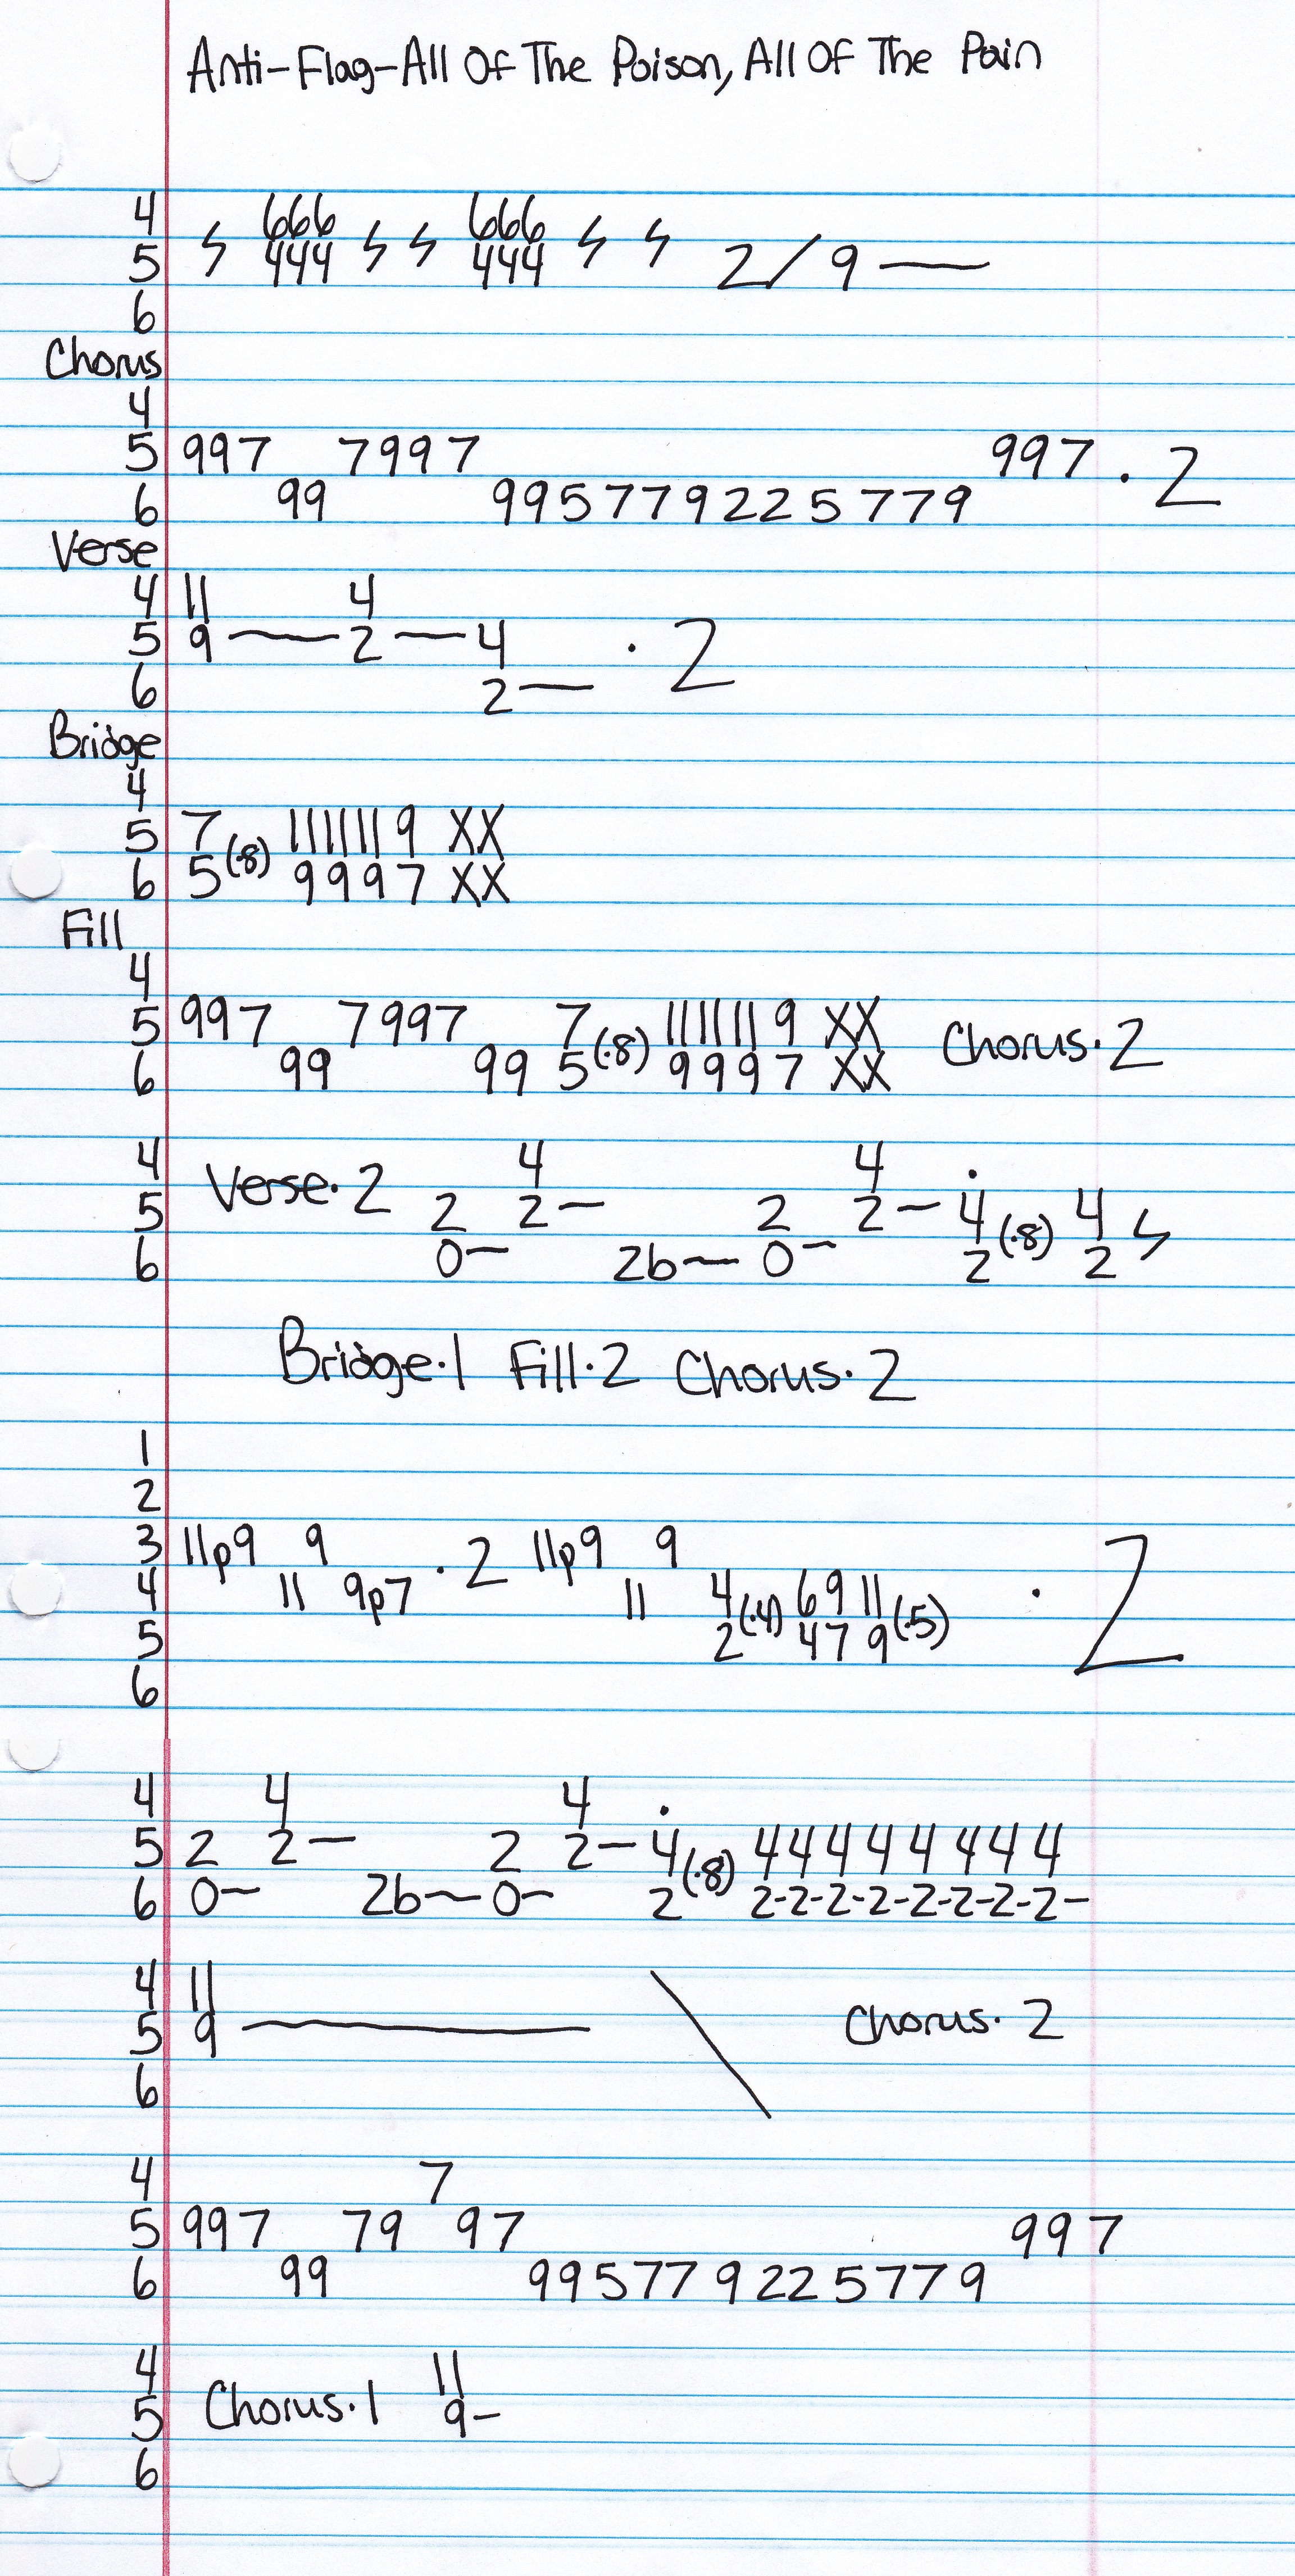 Anti-Flag-All Of The Poison, All Of The Pain
4 666 666
5 ϟ 444 ϟ ϟ 444 ϟ ϟ 2 / 9 —
6
Chorus
4
5 997 7997 997 · 2
6 99 995779225779
Verse
4 11 4
5 9 — 2 — 4 · 2
6 2 —
Bridge
4
5 7 (·8) 11 11 11 9 XX
6 5 9 9 9 7 XX
Fill
4
5 997 7997 7 (·8) 11 11 11 9 XX Chorus·2
6 99 99 5 9 9 9 7 XX
4 Verse·2 4 4 ·
5 2 2 — 2 2 — 4 (·8) 4 ϟ
6 0 — 2b — 0 — 2 2
Bridge·1 Fill·2 Chorus·2
1
2
3 11p9 9 · 2 11p9 9 · 2
4 11 9p7 11 4 (·4) 6 9 11 (·5)
5 2 4 7 9
6
4 4 4 ·
5 2 2 — 2 2 — 4 (·8) 4 4 4 4 4 4 4 4
6 0 — 2b — 0 — 2 2-2-2-2-2-2-2-2-
4 11 \
5 9 — Chorus·2
6
4 7
5 997 79 97 997
6 99 995779225779
4 11
5 Chorus·1 9 —
6